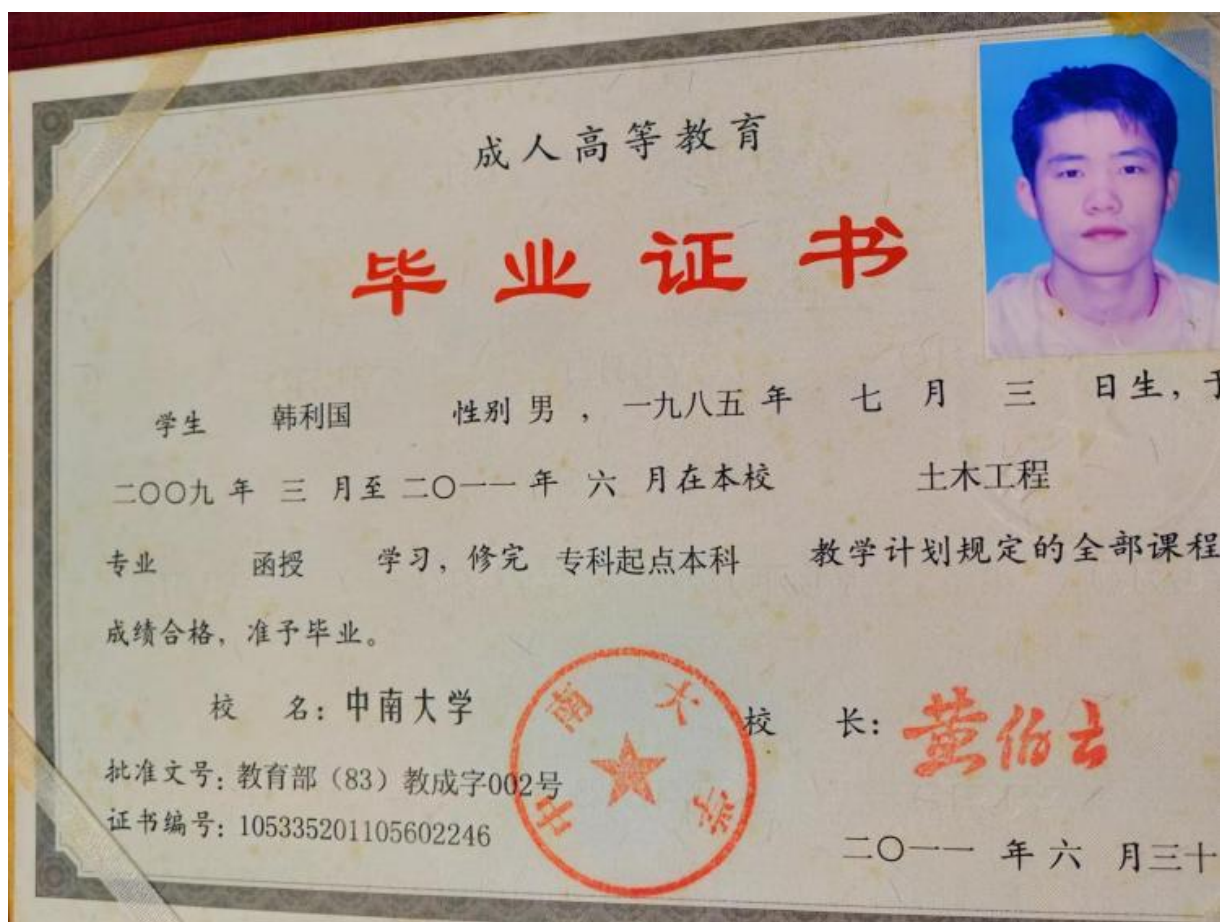 成人高等教育
毕业证书
学生 韩利国 性别 男 , 一九八五 年 七 月 三 日生, 于
二〇〇九 年 三 月至 二〇一一 年 六 月在本校 土木工程
专业 函授 学习, 修完 专科起点本科 教学计划规定的全部课程
成绩合格, 准予毕业。
校 名: 中南大学
校 长: 黄伯云
批准文号: 教育部（83）教成字002号
证书编号: 105335201105602246
二〇一一 年 六 月三十
中南大学